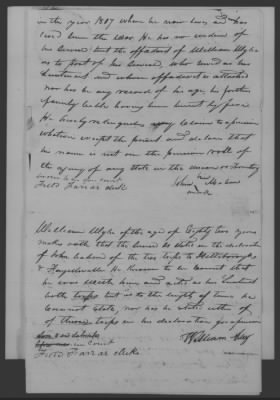 in the year 1807 where he now lives & has
lived since the War. He has no evidence of
his service but the affidavit of William Wylie
as to part of his service, who served as his
Lieutenant and whose affidavit is attached
nor has he any record of his age, his fathers
family bible having been burnt by fire
He hereby relinquishes every claim to a pension
whatever except the present and declares that
his name is not on the pension roll of
the agency of any state in the union or Territory
sworn to in open court
Fields Farrar clerk
John his mark
William Wylie of the age of Eighty two years
makes oath that the service as state in the declaration
of John of the two torps to Hillsborough
& Fayetteville He knows to be correct that
he was with him and acted as his Lieutenant
both torps but as to the length of time he
cannot state, nor has he stated either of
of those torps in his declaration for a pension
in Court
Fields Farrar clerk
William Wy